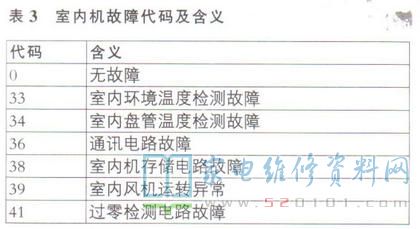 表 3 室内机故障代码及含义
代码 含义
0 无故障
33 室内环境温度检测故障
34 室内盘管温度检测故障
36 通讯电路故障
38 室内机存储电路故障
39 室内风机运转异常
41 过零检测电路故障
家电维修资料网
www.520101.com